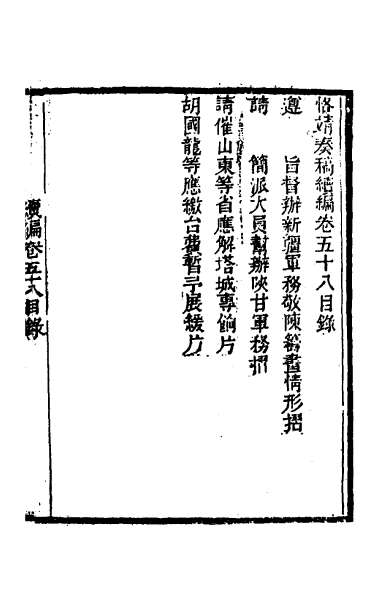 恪靖奏稿續編卷五十八目錄
遵　旨督辦新疆軍務敬陳籌畫情形摺
請　簡派大員幫辦陝甘軍務摺
請催山東等省應解塔城專餉片
胡國龍等應繳台費暫予展緩片
續編卷五十八目錄